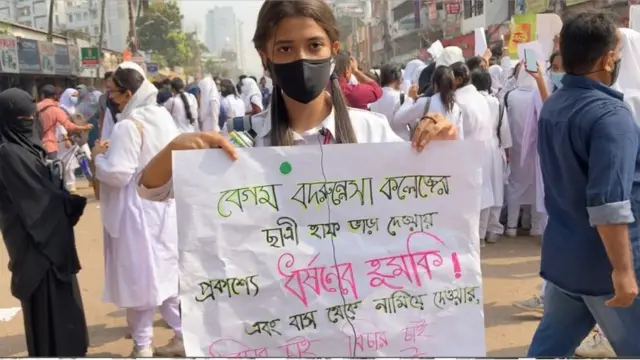 বেগম বদরুন্নেসা কলেজের
ছাত্রী হাফ ভাড়া দেওয়ায়
প্রকাশ্যে ধর্ষনের হুমকি!
এবং বাস থেকে নামিয়ে দেওয়ার,
বিচার চাই বিচার চাই